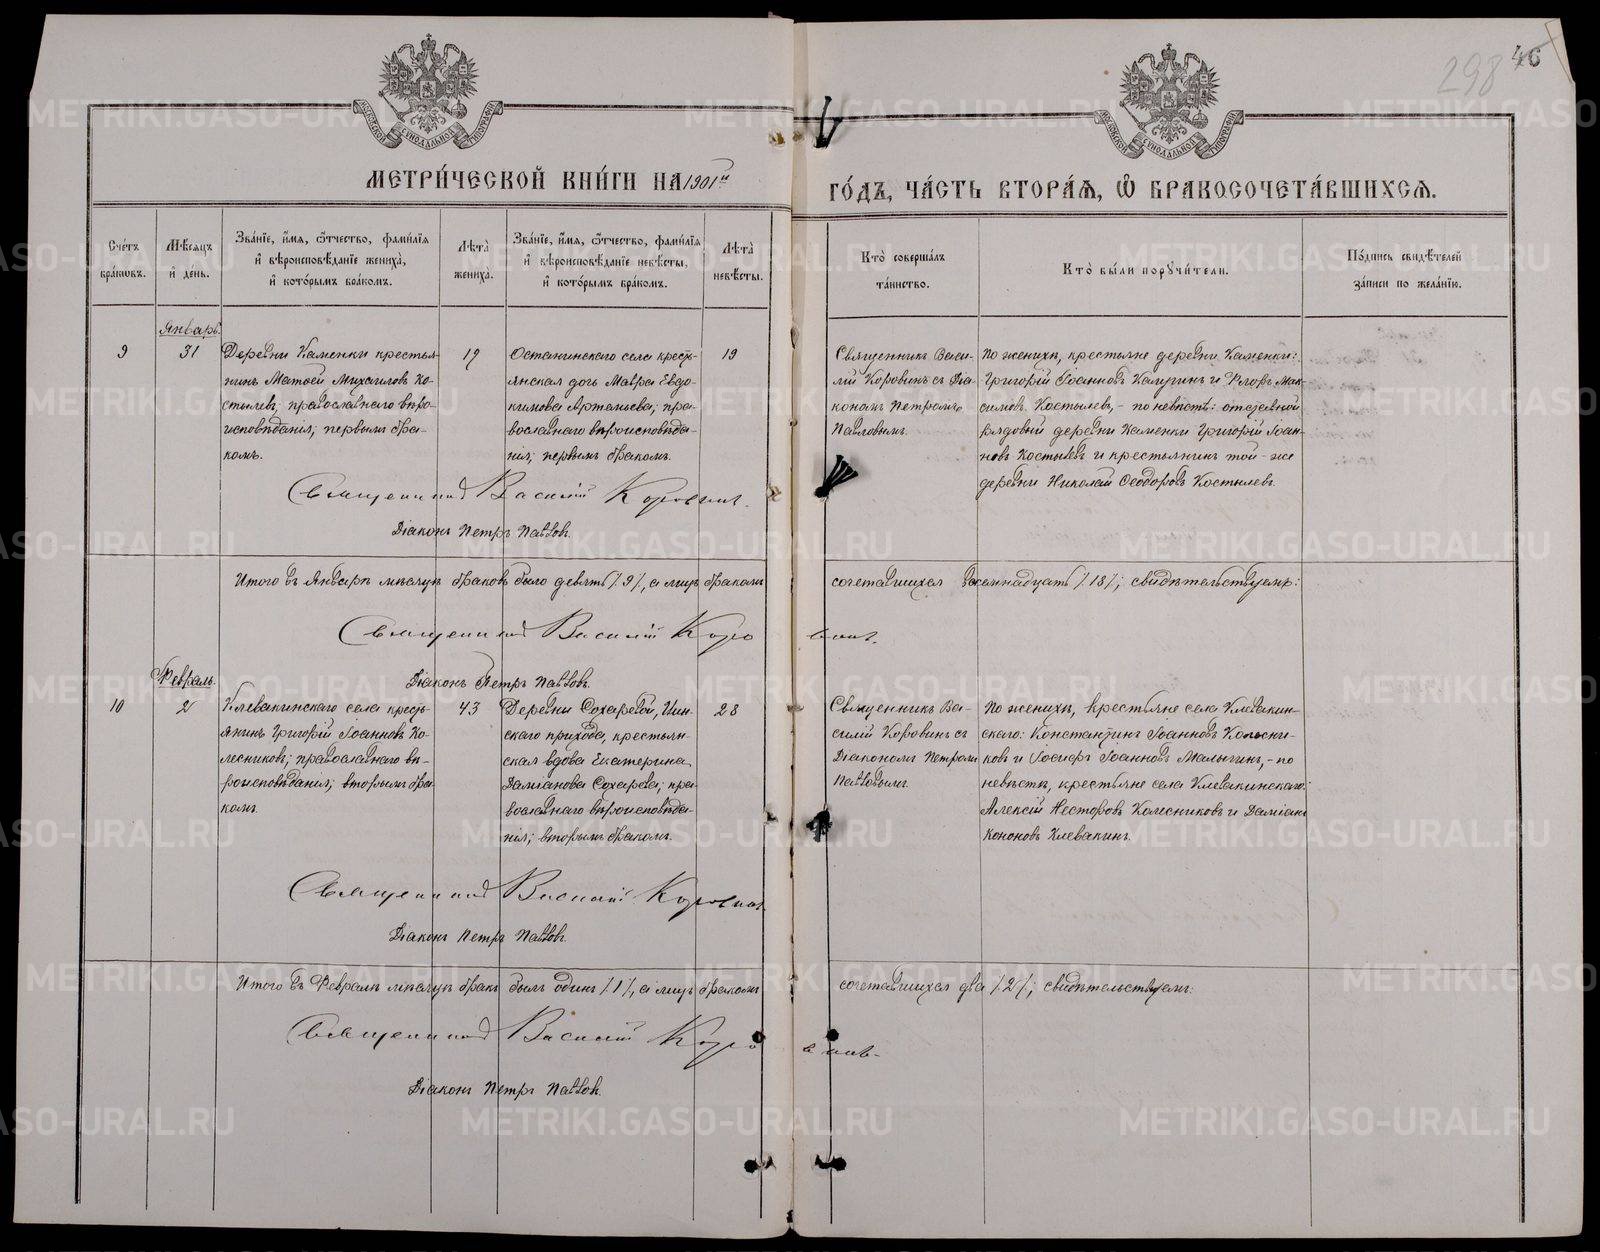 298
46
МОСКОВСКОЙ СУНОДАЛЬНОЙ ТИПОГРАФІИ
МОСКОВСКОЙ СУНОДАЛЬНОЙ ТИПОГРАФІИ
МЕТРИ́ЧЕСКОЙ КНИ́ГИ НА 1901й
ГО́ДЪ, ЧА́СТЬ ВТОРА́Ѧ, Ѽ БРАКОСОЧЕТА́ВШИХСѦ.
Сче́тъ бра́ковъ.
Мѣ́сяцъ и́ де́нь.
Зва́нїе, и́мѧ, ѻ́тчество, фами́лїѧ и́ вѣроисповѣ́данїе жениха̀, и́ кото́рымъ бра́комъ.
Лѣ́та̀ жениха̀.
Зва́нїе, и́мѧ, ѻ́тчество, фами́лїѧ и́ вѣроисповѣ́данїе невѣ́сты, и́ кото́рымъ бра́комъ.
Лѣ́та̀ невѣ́сты.
Кто̀ соверша́лъ та́инство.
Кто̀ бы́ли порꙋчи́тели.
По́дпись свидѣ́телей за́писи по жела́нїю.
Январь.
9
31
Деревни Каменки крестья-
нинъ Матѳей Михаиловъ Ко-
стылевъ; православнаго вѣро-
исповѣданія; первымъ бра-
комъ.
19
Останинскаго села кресть-
янская дочь Мавра Евдо-
кимова Артемьева; пра-
вославнаго вѣроисповѣда-
нія; первымъ бракомъ.
19
Священникъ Васи-
лій Коровинъ съ Діа-
кономъ Петромъ
Павловымъ.
По женихѣ, крестьяне деревни Каменки:
Григорій Іоанновъ Калугинъ и Флоръ Мак-
симовъ Костылевъ, - по невѣстѣ: отставной
рядовой деревни Каменки Григорій Іоан-
новъ Костылевъ и крестьянинъ той-же
деревни Николай Ѳеодоровъ Костылевъ.
Священникъ Василій Коровинъ.
Діаконъ Петръ Павловъ.
Итого въ Январѣ мѣсяцѣ браковъ было девять /9/, а лицъ бракомъ сочетавшихся восемнадцать /18/; свидѣтельствуемъ:
Священникъ Василій Коровинъ.
Діаконъ Петръ Павловъ.
Февраль.
10
2
Клевакинскаго села кресть-
янинъ Григорій Іоанновъ Ко-
лесниковъ; православнаго вѣ-
роисповѣданія; вторымъ бра-
комъ.
43
Деревни Сохаревой,
скаго прихода, крестьян-
ская вдова Екатерина
Даміанова Сохарева; пра-
вославнаго вѣроисповѣда-
нія; вторымъ бракомъ.
28
Священникъ Ва-
силій Коровинъ съ
Діакономъ Петромъ
Павловымъ.
По женихѣ, крестьяне села Клевакин-
скаго: Константинъ Іоанновъ Колесни-
ковъ и Іосифъ Іоанновъ Малыгинъ, - по
невѣстѣ, крестьяне села Клевакинскаго:
Алексій Несторовъ Колесниковъ и Даміанъ
Кононовъ Клевакинъ.
Священникъ Василій Коровинъ.
Діаконъ Петръ Павловъ.
Итого въ Февралѣ мѣсяцѣ бракъ былъ одинъ /1/, а лицъ бракомъ сочетавшихся два /2/; свидѣтельствуемъ:
Священникъ Василій Коровинъ.
Діаконъ Петръ Павловъ.
METRIKI.GASO-URAL.RU